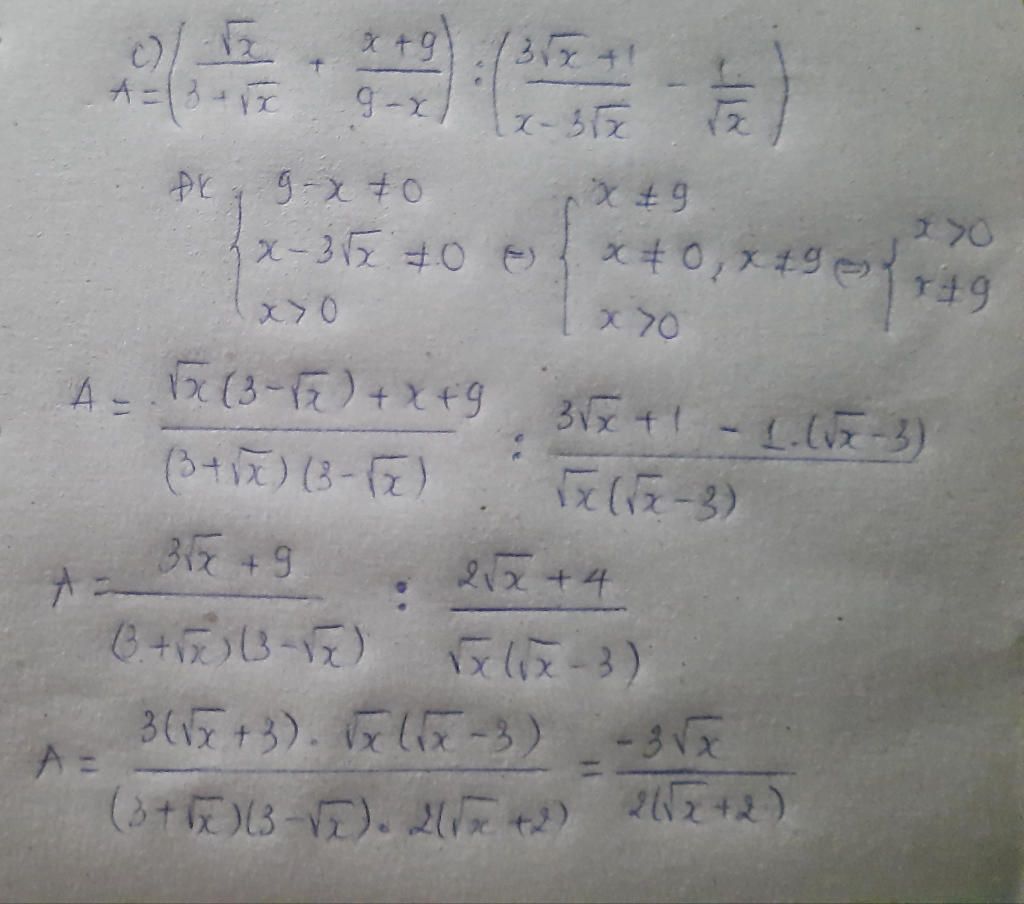 c) A = (√x / (3 + √x) + (x + 9) / (9 - x)) : ((3√x + 1) / (x - 3√x) - 1 / √x)
ĐK { 9 - x ≠ 0 ; x - 3√x ≠ 0 ; x > 0 ⇔ { x ≠ 9 ; x ≠ 0, x ≠ 9 ; x > 0 ⇔ { x > 0 ; x ≠ 9
A = (√x(3 - √x) + x + 9) / ((3 + √x)(3 - √x)) : (3√x + 1 - 1.(√x - 3)) / (√x(√x - 3))
A = (3√x + 9) / ((3 + √x)(3 - √x)) : (2√x + 4) / (√x(√x - 3))
A = (3(√x + 3) . √x(√x - 3)) / ((3 + √x)(3 - √x) . 2(√x + 2)) = -3√x / (2(√x + 2))